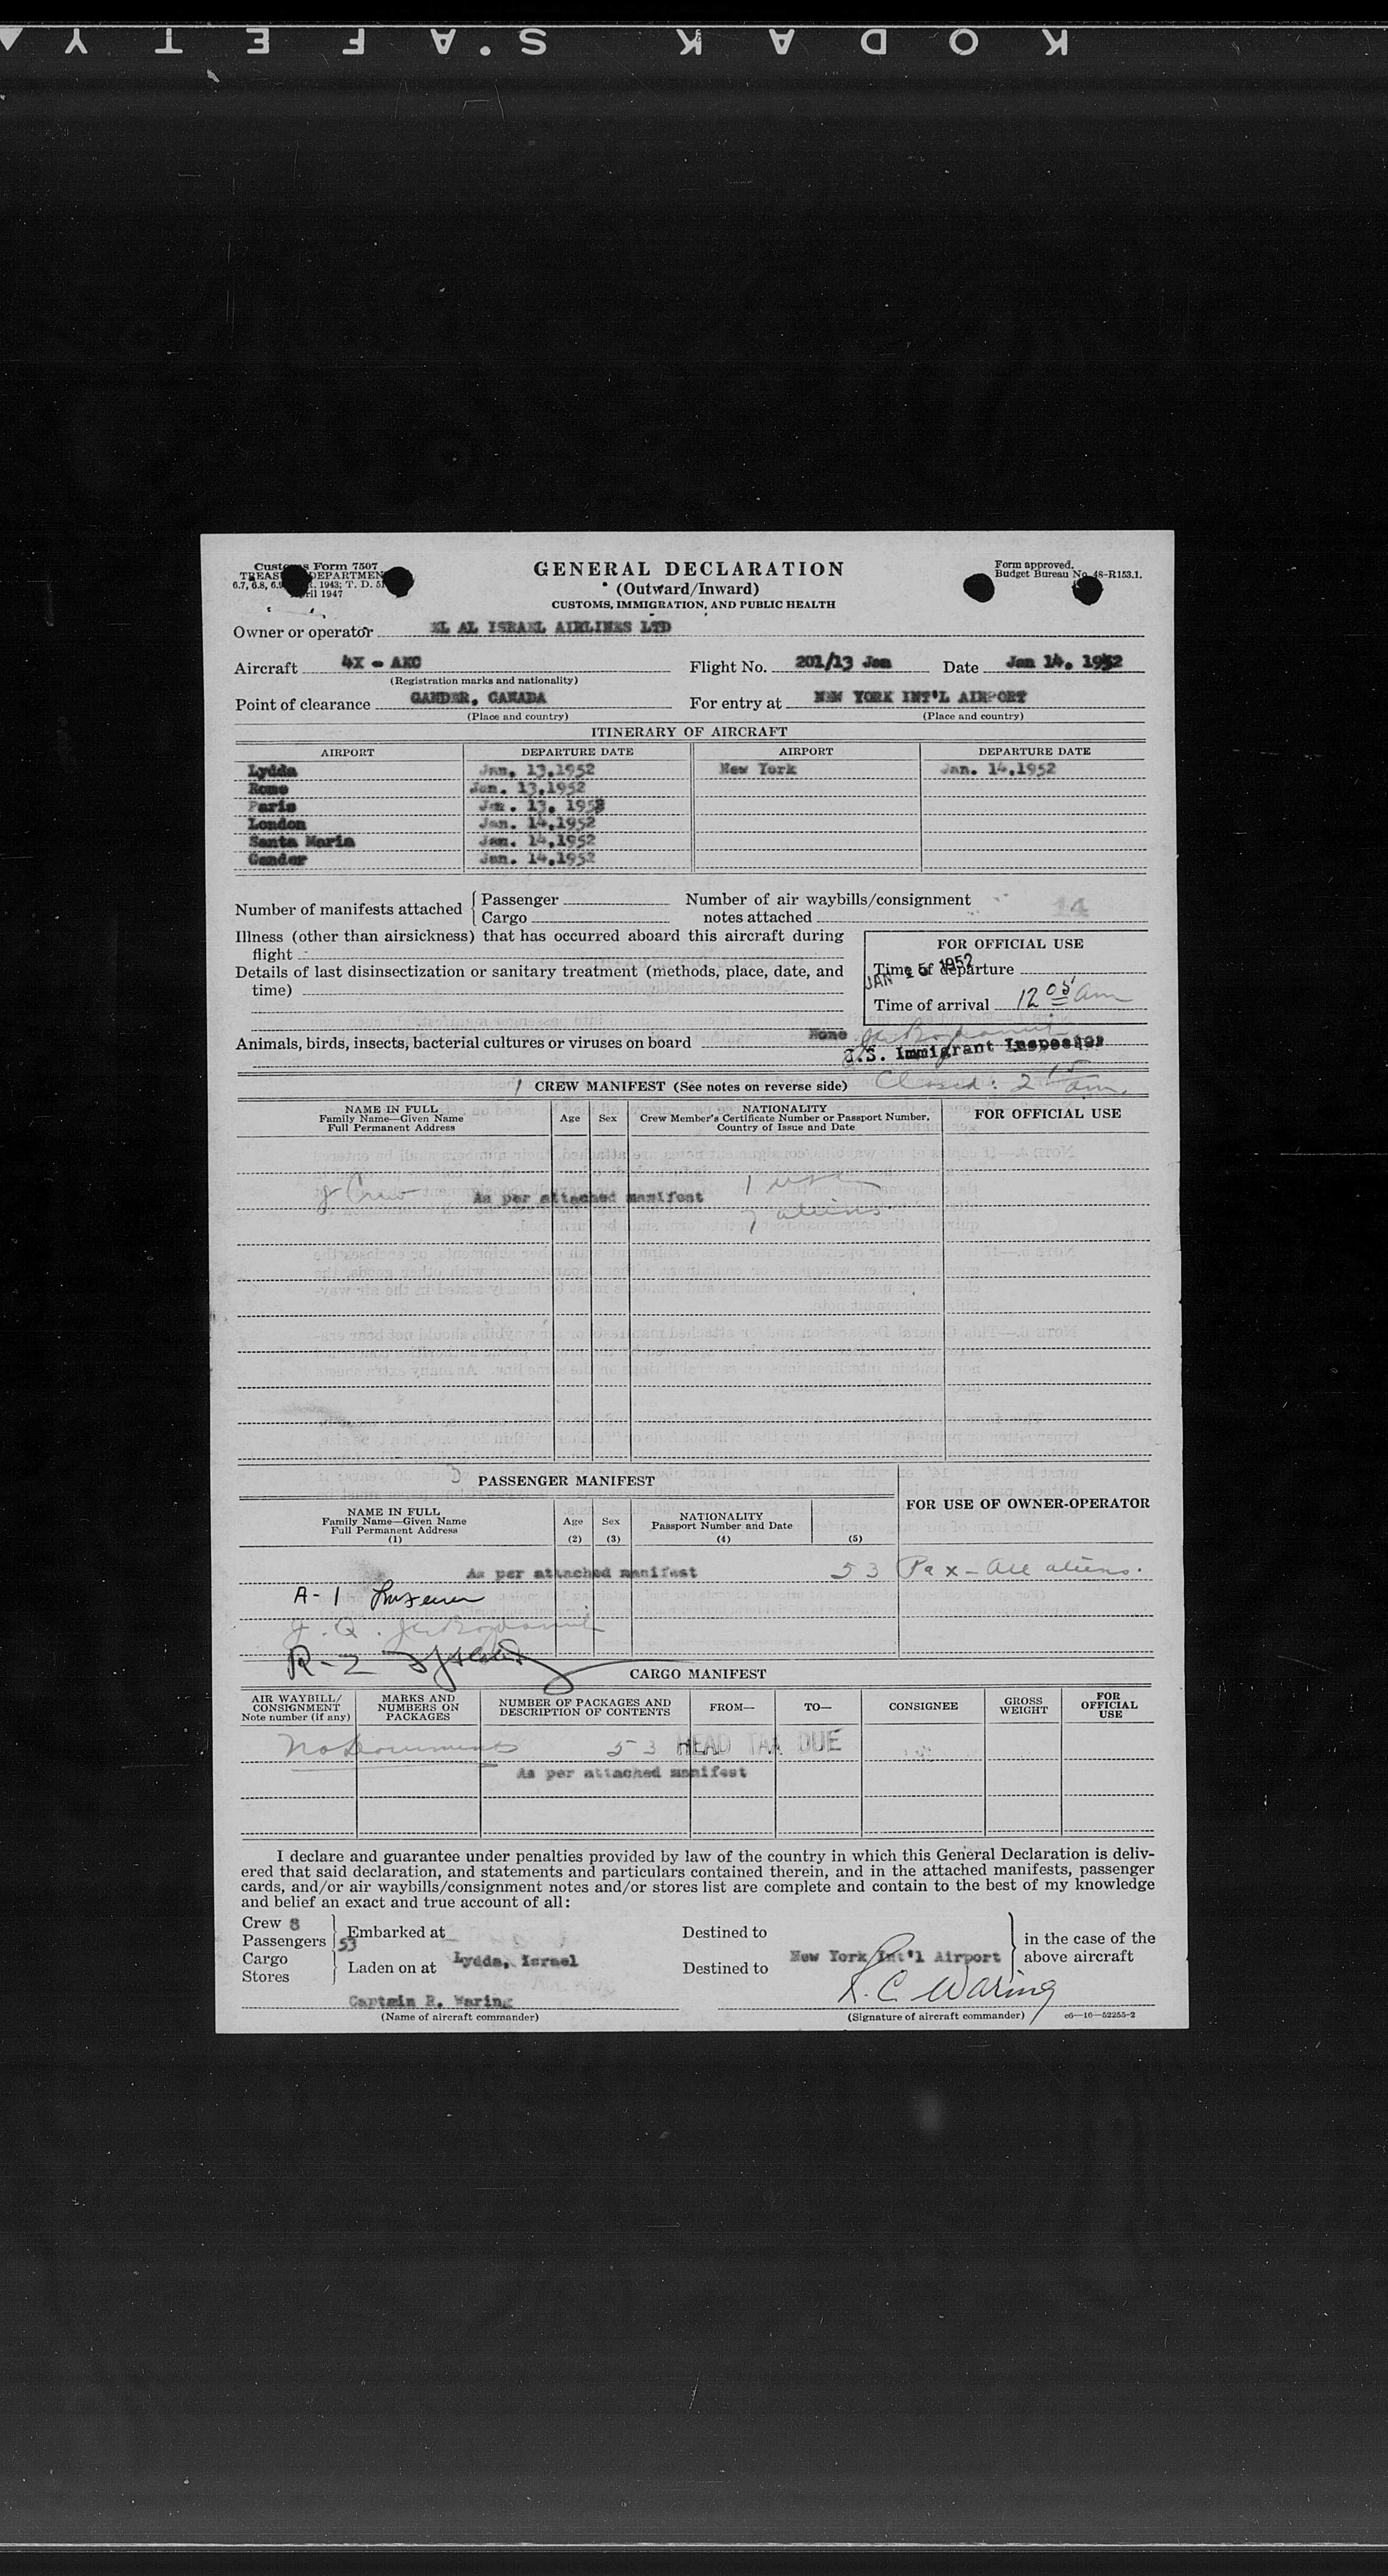 KODAK S.AFETY
Customs Form 7507
TREASURY DEPARTMENT
6.7, 6.8, 1943; T. D.
April 1947
GENERAL DECLARATION
(Outward/Inward)
CUSTOMS, IMMIGRATION, AND PUBLIC HEALTH
Form approved.
Budget Bureau No. 48-R153.1.
Owner or operator EL AL ISRAEL AIRLINES LTD
Aircraft 4X - AKC Flight No. 201/13 Jan Date Jan 14. 1952
(Registration marks and nationality)
Point of clearance GANDER, CANADA For entry at NEW YORK INT'L AIRPORT
(Place and country) (Place and country)
ITINERARY OF AIRCRAFT
AIRPORT DEPARTURE DATE AIRPORT DEPARTURE DATE
Lydda Jan. 13.1952 New York Jan. 14.1952
Rome Jan. 13.1952
Paris Jan. 13. 1952
London Jan. 14.1952
Santa Maria Jan. 14.1952
Gander Jan. 14.1952
Number of manifests attached { Passenger
Cargo
Number of air waybills/consignment
notes attached 14
Illness (other than airsickness) that has occurred aboard this aircraft during
flight
Details of last disinsectization or sanitary treatment (methods, place, date, and
time)
FOR OFFICIAL USE
Time of departure
JAN 15 1952
Time of arrival 12 05 am
Animals, birds, insects, bacterial cultures or viruses on board None
U.S. Immigrant Inspector
1 CREW MANIFEST (See notes on reverse side) Closed: 2 15 am.
NAME IN FULL
Family Name—Given Name
Full Permanent Address
Age Sex
NATIONALITY
Crew Member's Certificate Number or Passport Number,
Country of Issue and Date
FOR OFFICIAL USE
8 Crew As per attached manifest 1 usc
7 aliens.
3 PASSENGER MANIFEST
FOR USE OF OWNER-OPERATOR
NAME IN FULL
Family Name—Given Name
Full Permanent Address
(1)
Age
(2)
Sex
(3)
NATIONALITY
Passport Number and Date
(4)
(5)
As per attached manifest 53 Pax - All aliens.
A-1
R-2
CARGO MANIFEST
AIR WAYBILL/
CONSIGNMENT
Note number (if any)
MARKS AND
NUMBERS ON
PACKAGES
NUMBER OF PACKAGES AND
DESCRIPTION OF CONTENTS
FROM— TO— CONSIGNEE
GROSS
WEIGHT
FOR
OFFICIAL
USE
No Documents 53 HEAD TAX DUE
As per attached manifest
I declare and guarantee under penalties provided by law of the country in which this General Declaration is deliv-
ered that said declaration, and statements and particulars contained therein, and in the attached manifests, passenger
cards, and/or air waybills/consignment notes and/or stores list are complete and contain to the best of my knowledge
and belief an exact and true account of all:
Crew 8
Passengers 53
Cargo
Stores
Embarked at
Laden on at Lydda, Israel
Destined to
Destined to New York Int'l Airport
in the case of the
above aircraft
Captain R. Waring R. C. Waring
(Name of aircraft commander) (Signature of aircraft commander) c6—16—52255-2